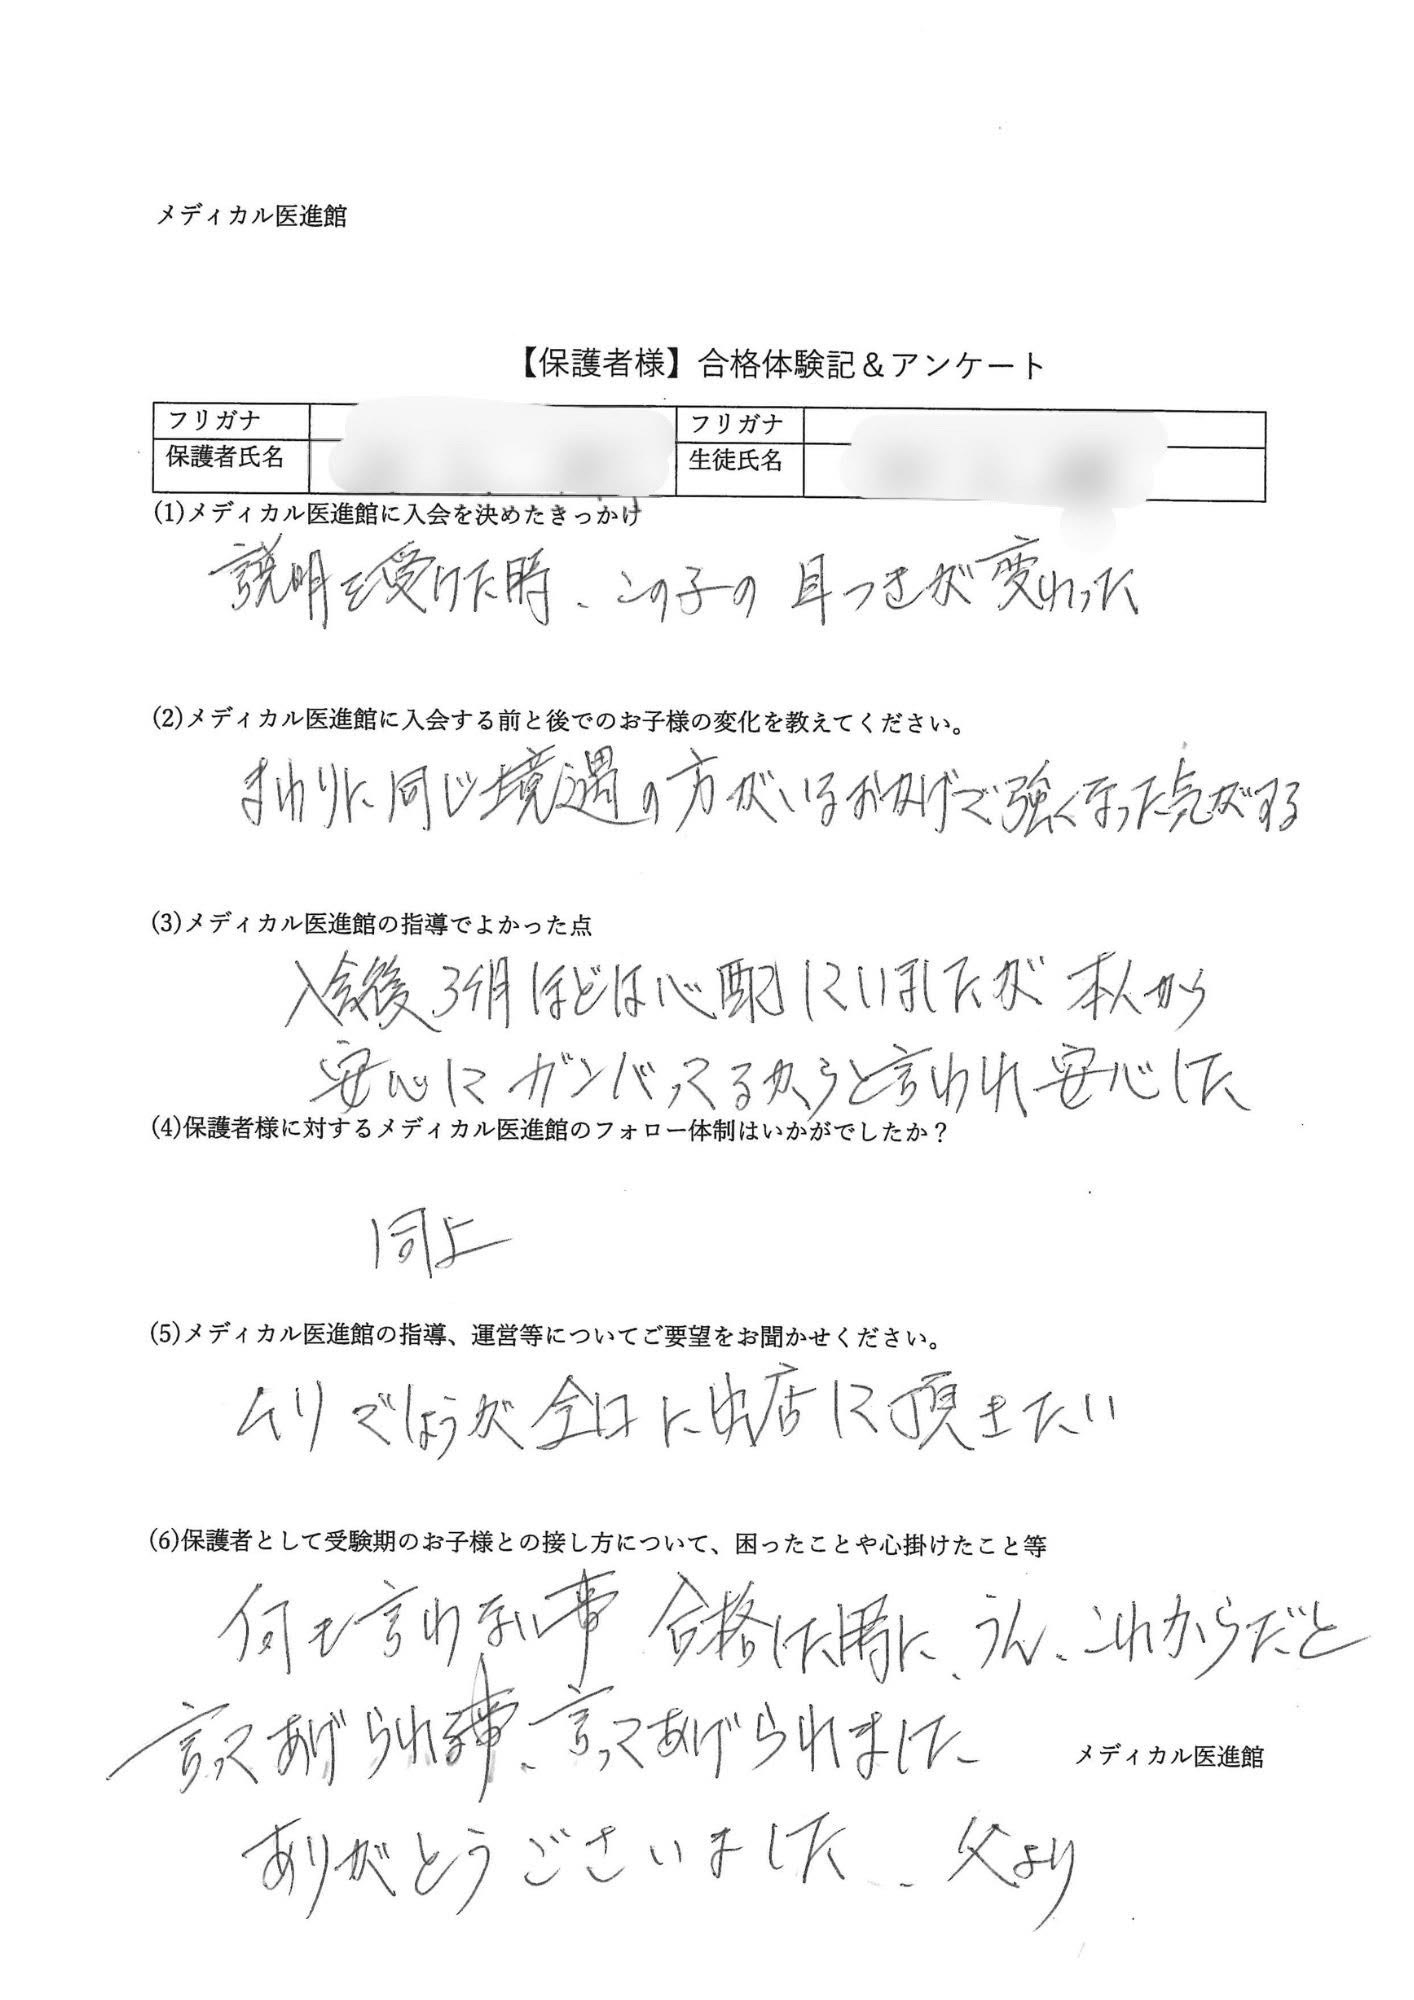 メディカル医進館
【保護者様】合格体験記＆アンケート
フリガナ
フリガナ
保護者氏名
生徒氏名
(1)メディカル医進館に入会を決めたきっかけ
説明を受けた時、この子の目つきが変わった
(2)メディカル医進館に入会する前と後でのお子様の変化を教えてください。
まわりに同じ境遇の方がいるおかげで強くなった気がする
(3)メディカル医進館の指導でよかった点
入会後3ヶ月ほどは心配していましたが 本人から
安心してガンバってるからと言われ安心した
(4)保護者様に対するメディカル医進館のフォロー体制はいかがでしたか？
同上
(5)メディカル医進館の指導、運営等についてご要望をお聞かせください。
ムリでしょうが全日に出店して頂きたい
(6)保護者として受験期のお子様との接し方について、困ったことや心掛けたこと等
何も言わない事 合格した時に、うん、これからだと
言ってあげられる事、言ってあげられました
メディカル医進館
ありがとうございました、父より